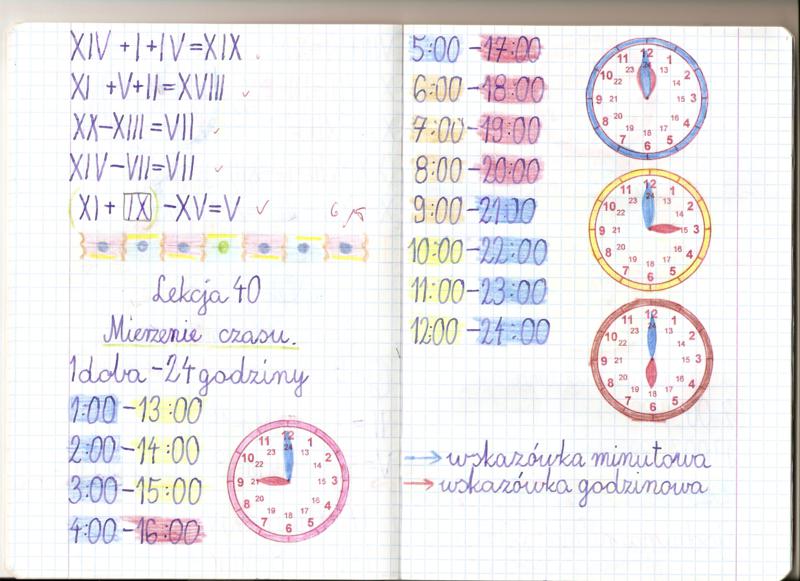 XIV + I + IV = XIX
XI + V + II = XVIII
XX – XIII = VII
XIV – VII = VII
(XI + IX) – XV = V
Lekcja 40
Mierzenie czasu.
1 doba – 24 godziny
1:00 – 13:00
2:00 – 14:00
3:00 – 15:00
4:00 – 16:00
12 1 2 3 4 5 6 7 8 9 10 11
24 13 14 15 16 17 18 19 20 21 22 23
5:00 – 17:00
6:00 – 18:00
7:00 – 19:00
8:00 – 20:00
9:00 – 21:00
10:00 – 22:00
11:00 – 23:00
12:00 – 24:00
12 1 2 3 4 5 6 7 8 9 10 11
24 13 14 15 16 17 18 19 20 21 22 23
12 1 2 3 4 5 6 7 8 9 10 11
24 13 14 15 16 17 18 19 20 21 22 23
12 1 2 3 4 5 6 7 8 9 10 11
24 13 14 15 16 17 18 19 20 21 22 23
→ wskazówka minutowa
→ wskazówka godzinowa